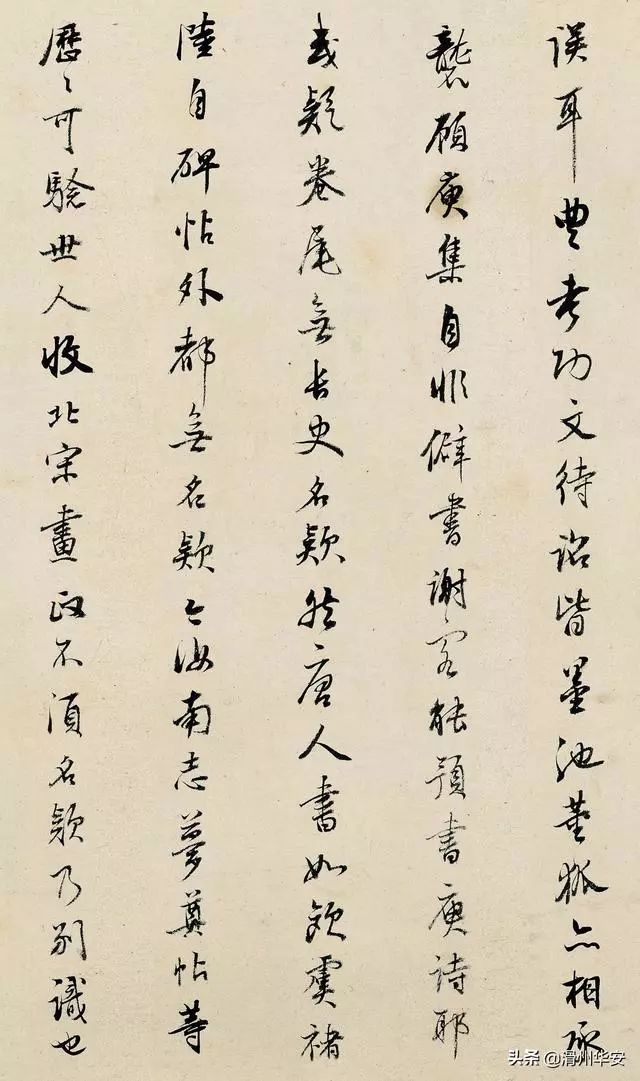 誤耳豊考功文待詔皆墨池董狐亦相承
襲顧庾集自非僻書謝客能預書庾詩耶
或疑卷尾無長史名款然唐人書如歐虞褚
陸自碑帖外都無名款今汝南志夢奠帖等
歷〻可驗世人收北宋畫政不須名款乃別識也
头条 @滑州华安